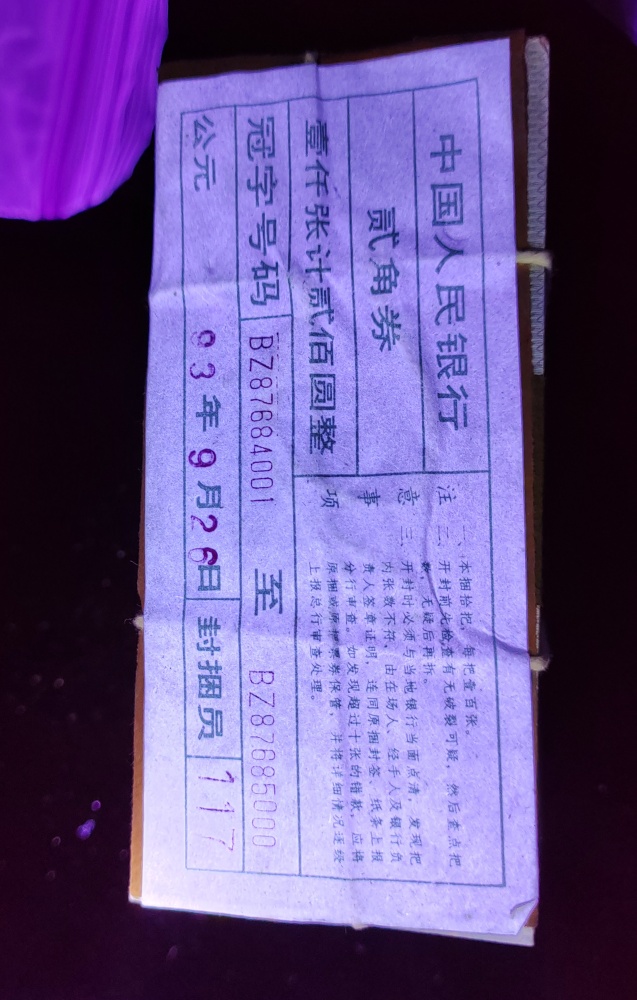 中国人民银行
贰角券
壹仟张计贰佰圆整
冠字号码 BZ87684001 至 BZ87685000
公元 93年9月26日 封捆员 117
注意事项
一、本捆拾把，每把壹百张。
二、开封前先检查有无破裂可疑，然后查点把
数，无疑后再拆。
三、开封时必须与当地银行当面点清，发现把
内张数不符，由在场人、经手人及银行负
责人签章证明，连同原捆封签、纸条上报
分行审查。如发现超过十张的错款，应将
原捆或原把票券保管，并将详细情况逐经
上报总行审查处理。